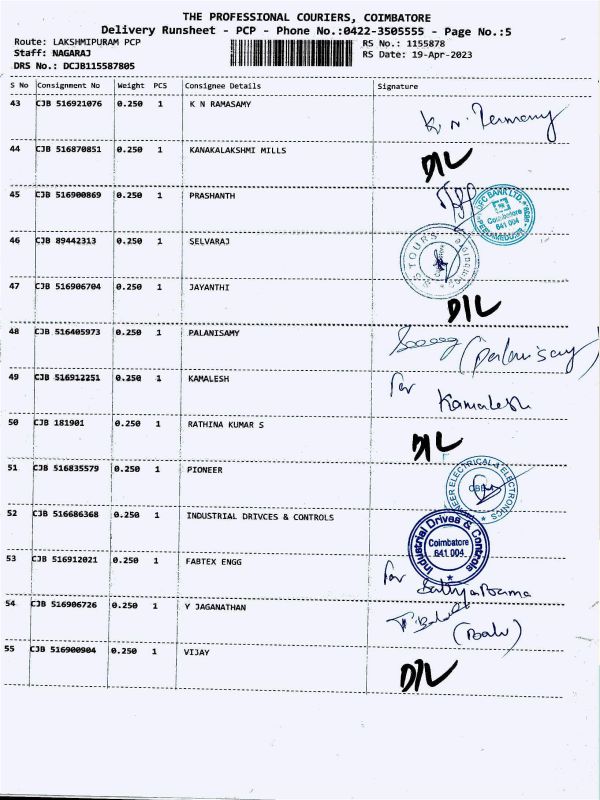 THE PROFESSIONAL COURIERS, COIMBATORE
Delivery Runsheet - PCP - Phone No.:0422-3505555 - Page No.:5
Route: LAKSHMIPURAM PCP RS No.: 1155878
Staff: NAGARAJ RS Date: 19-Apr-2023
DRS No.: DCJB115587805
S No Consignment No Weight PCS Consignee Details Signature
43 CJB 516921076 0.250 1 K N RAMASAMY K. N.
44 CJB 516870851 0.250 1 KANAKALAKSHMI MILLS D/L
45 CJB 516900869 0.250 1 PRASHANTH
BANK LTD. Coimbatore 641 004
46 CJB 89442313 0.250 1 SELVARAJ
TOURS
47 CJB 516906704 0.250 1 JAYANTHI D/L
48 CJB 516405973 0.250 1 PALANISAMY (palanisamy)
49 CJB 516912251 0.250 1 KAMALESH For
Kamalesh
50 CJB 181901 0.250 1 RATHINA KUMAR S D/L
51 CJB 516835579 0.250 1 PIONEER
ELECTRICAL & ELECTRONICS
52 CJB 516686368 0.250 1 INDUSTRIAL DRIVCES & CONTROLS
Industrial Drives & Controls Coimbatore 641 004.
53 CJB 516912021 0.250 1 FABTEX ENGG For
54 CJB 516906726 0.250 1 Y JAGANATHAN
(Balu)
55 CJB 516900904 0.250 1 VIJAY D/L